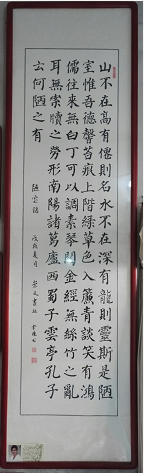 山不在高有僊則名水不在深有龍則靈斯是陋
室惟吾德馨苔痕上階綠草色入簾青談笑有鴻
儒往來無白丁可以調素琴閱金經無絲竹之亂
耳無案牘之勞形南陽諸葛廬西蜀子雲亭孔子
云何陋之有
陋室銘
戊戌夏月